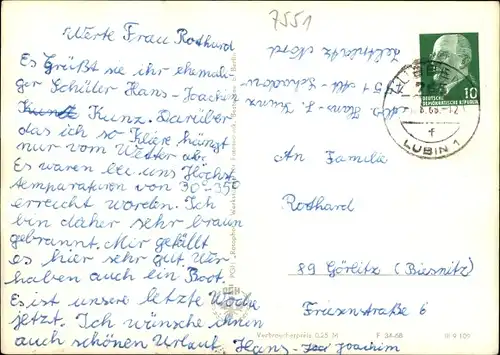 7551
Werte Frau Rothard
Es Grüßt sie ihr ehemali-
ger Schüler Hans-Joachim
Kunz. Darüber
das ich so Kläre hängt
nur vom Wetter ab.
Es waren bei uns Höchst
temparaturen von 30°-35°
erreicht worden. Ich
bin daher sehr braun
gebrannt. Mir gefällt
es hier sehr gut. Wir
haben auch ein Boot.
Es ist unsere letzte Woche
jetzt. Ich wünsche ihnen
auch schönen Urlaub. Hans-Joachim
Abs. Hans-J. Kunz
Zeltplatz Nord
10
DEUTSCHE
DEMOKRATISCHE REPUBLIK
LÜBBEN
LUBIN 1
f
An Familie
Rothard
89 Görlitz (Biesnitz)
Friesenstraße 6
Verbraucherpreis 0,25 M